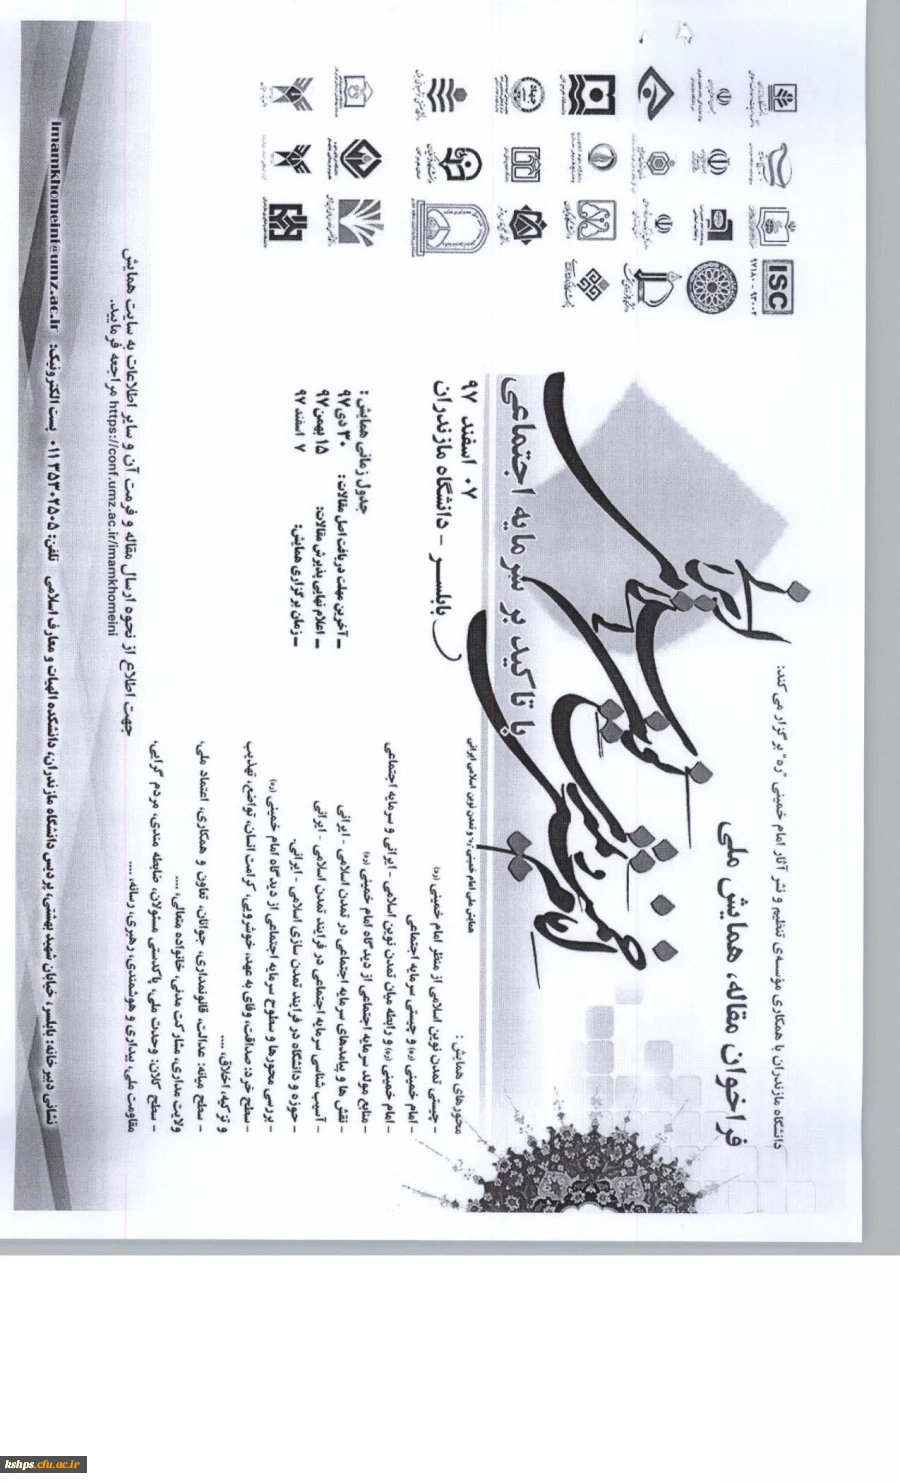 دانشگاه مازندران با همکاری مؤسسه‌ی تنظیم و نشر آثار امام خمینی "ره" برگزار می‌کند:
فراخوان مقاله، همایش ملی
امام خمینی
و تمدن نوین اسلامی ایرانی
با تاکید بر سرمایه اجتماعی
همایش ملی امام خمینی "ره" و تمدن نوین اسلامی ایرانی
۰۷ اسفند ۹۷
بابلسر - دانشگاه مازندران
ISC
۹۷۱۸۰-۹۳۰۰۲
محورهای همایش:
- چیستی تمدن نوین اسلامی از منظر امام خمینی (ره)
- امام خمینی (ره) و چیستی سرمایه اجتماعی
- امام خمینی (ره) و رابطه میان تمدن نوین اسلامی - ایرانی و سرمایه اجتماعی
- منابع مولد سرمایه اجتماعی از دیدگاه امام خمینی (ره)
- نقش ها و پیامدهای سرمایه اجتماعی در تمدن اسلامی - ایرانی
- آسیب شناسی سرمایه اجتماعی در فرایند تمدن اسلامی - ایرانی
- حوزه و دانشگاه در فرایند تمدن سازی اسلامی - ایرانی.
- بررسی محورها و سطوح سرمایه اجتماعی از دیدگاه امام خمینی (ره)
- سطح خرد: صداقت، وفای به عهد، خوشرویی، کرامت انسان، تواضع، تهذیب
و تزکیه، اخلاق، ....
- سطح میانه: عدالت، قانونمداری، جوانان، تعاون و همکاری، اعتماد ملی،
ولایت مداری، مشارکت مدنی، خانواده متعالی، ....
- سطح کلان: وحدت ملی، پاکدستی مسئولان، ضابطه مندی، مردم گرایی،
مقاومت ملی، بیداری و هوشمندی، رهبری، رسانه، ....
جدول زمانی همایش:
– آخرین مهلت دریافت اصل مقالات: ۳۰ دی ۹۷
– اعلام نهایی پذیرش مقالات: ۱۵ بهمن ۹۷
– زمان برگزاری همایش: ۷ اسفند ۹۷
جهت اطلاع از نحوه ارسال مقاله و فرمت آن و سایر اطلاعات به سایت همایش
https://conf.umz.ac.ir/imamkhomeini مراجعه فرمایید.
نشانی دبیرخانه: بابلسر، خیابان شهید بهشتی، پردیس دانشگاه مازندران، دانشکده الهیات و معارف اسلامی تلفن: ۰۱۱۳۵۳۰۲۵۰۵ پست الکترونیک: imamkhomeini@umz.ac.ir
kshps.cfu.ac.ir